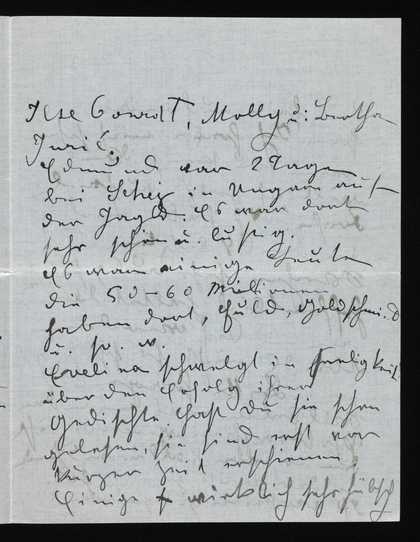 Ilse Conrat, Molly u: Bertha
Juric.
Edmund war 2 Tage
bei Schey in Ungarn auf
der Jagd. Es war dort
sehr schön u. lustig.
Es waren einige Leute
die 50-60 Millionen
haben dort, Fuld, Goldschmi.d
u. s. w.
Evelina schwelgt in Seeligkeit
über den Erfolg ihrer
Gedichte hast du sie schon
gelesen, sie sind erst vor
kurzer Zeit erschienen,
Einige wirklich sehr hübsch